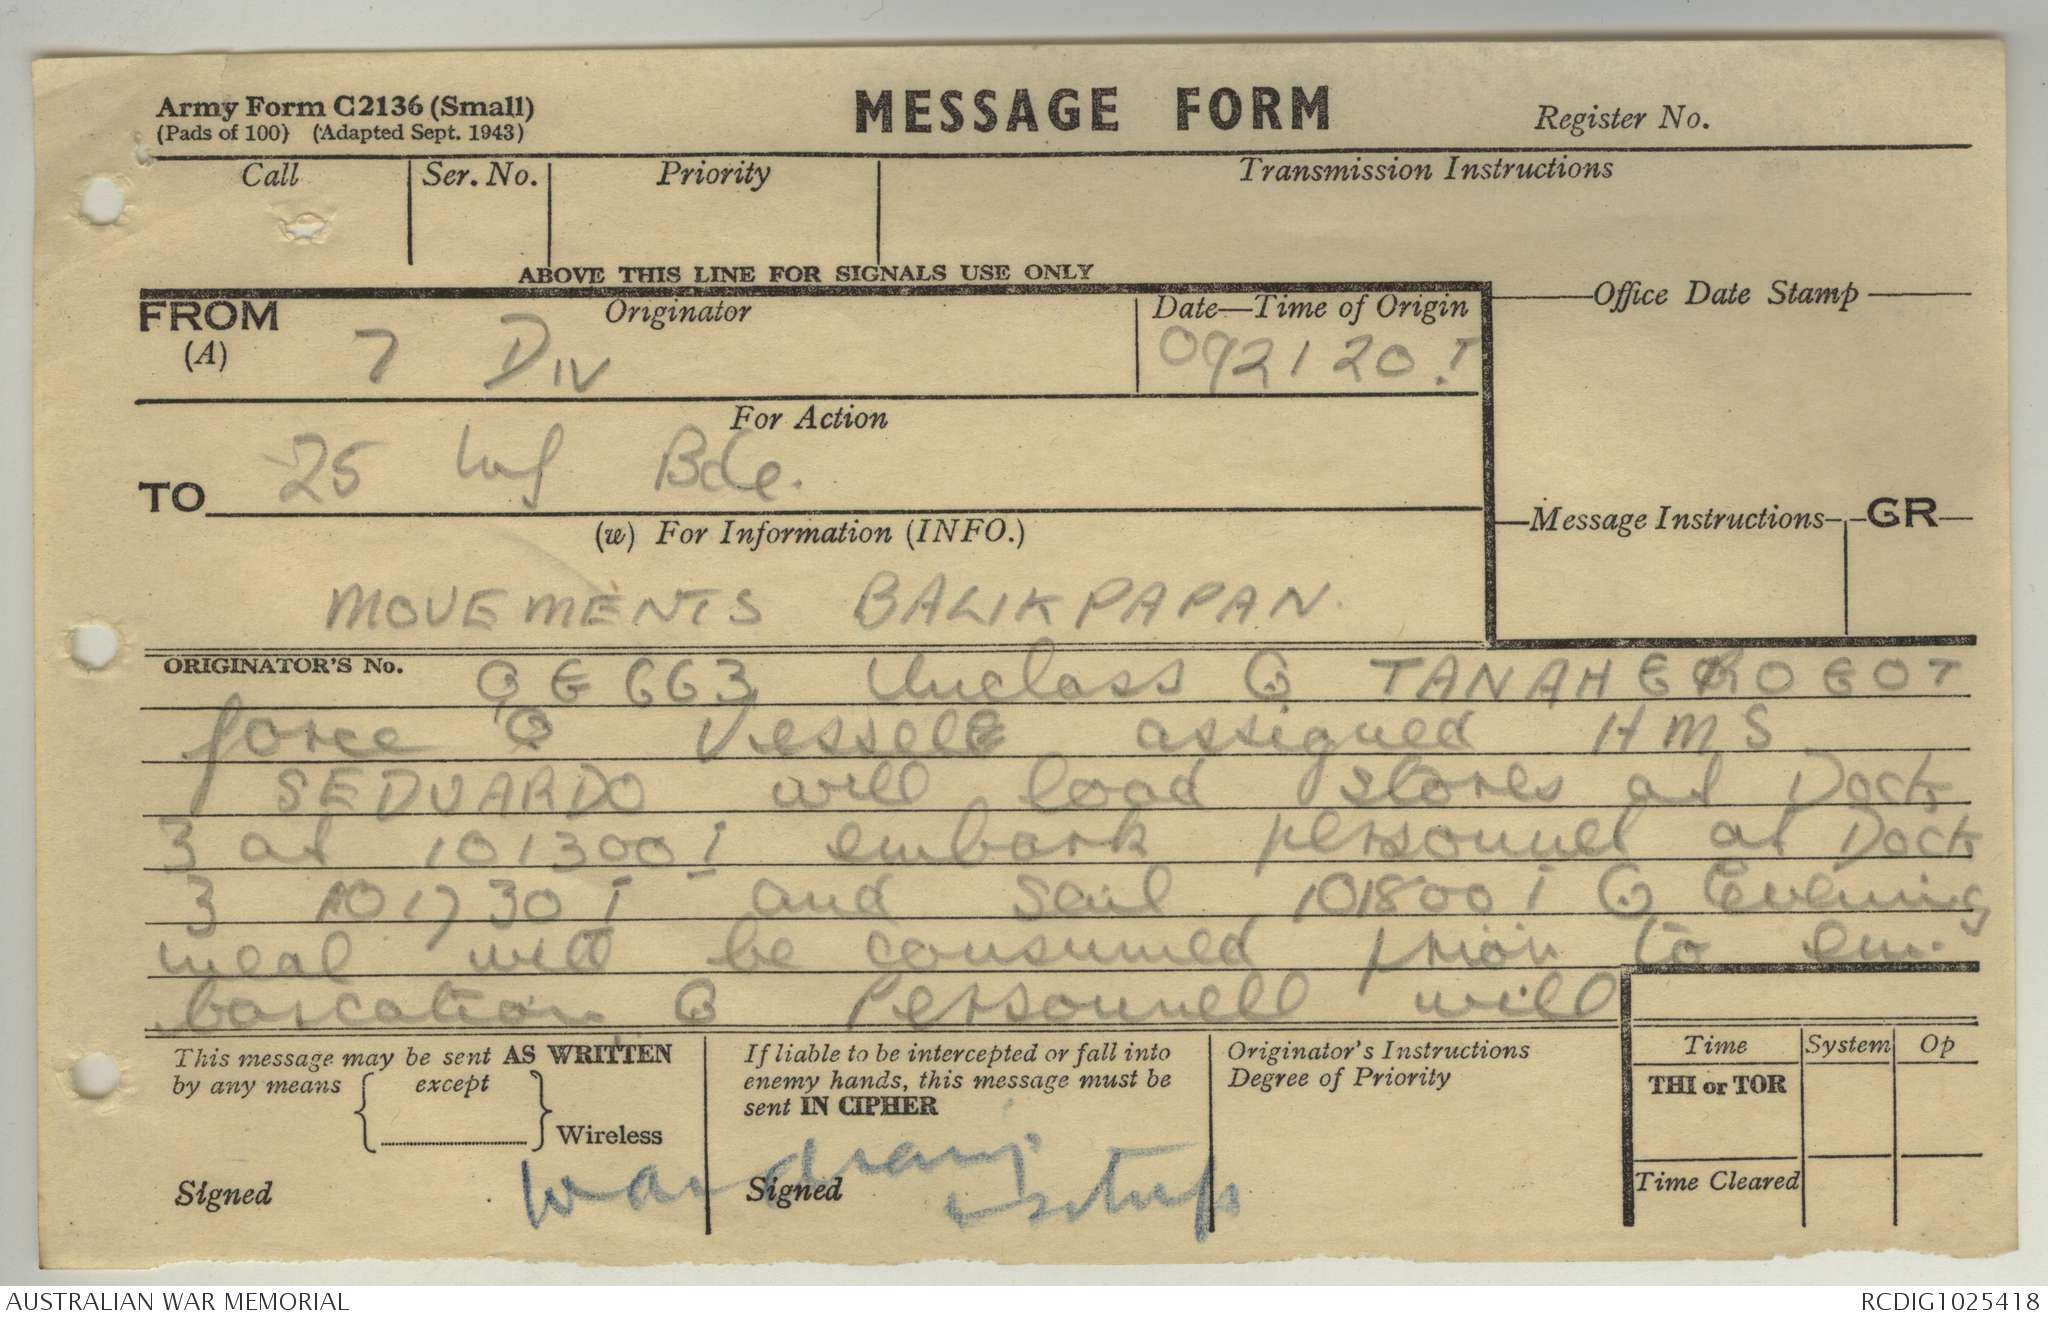 Army Form C2136 (Small)
(Pads of 100) (Adapted Sept. 1943)
MESSAGE FORM
Register No.
Call Ser. No. Priority Transmission Instructions
ABOVE THIS LINE FOR SIGNALS USE ONLY
FROM
(A)
Originator
7 DIV
Date—Time of Origin
092120 I
Office Date Stamp
For Action
TO
25 Inf Bde.
(w) For Information (INFO.)
MOVEMENTS BALIKPAPAN.
Message Instructions GR
ORIGINATOR'S No. QE 663 Unclass Q TANAHEROGOT
force Q Vessels assigned HMS
SEDUARDO will load stores at Dock
3 at 101300 I embark personnel at Dock
3 101730 I and sail 101800 I Q Evening
meal will be consumed prior to em-
barcation Q Personnell will
This message may be sent AS WRITTEN
by any means except
Wireless
Signed
If liable to be intercepted or fall into
enemy hands, this message must be
sent IN CIPHER
Signed
Originator's Instructions
Degree of Priority
Time System Op
THI or TOR
Time Cleared
AUSTRALIAN WAR MEMORIAL
RCDIG1025418